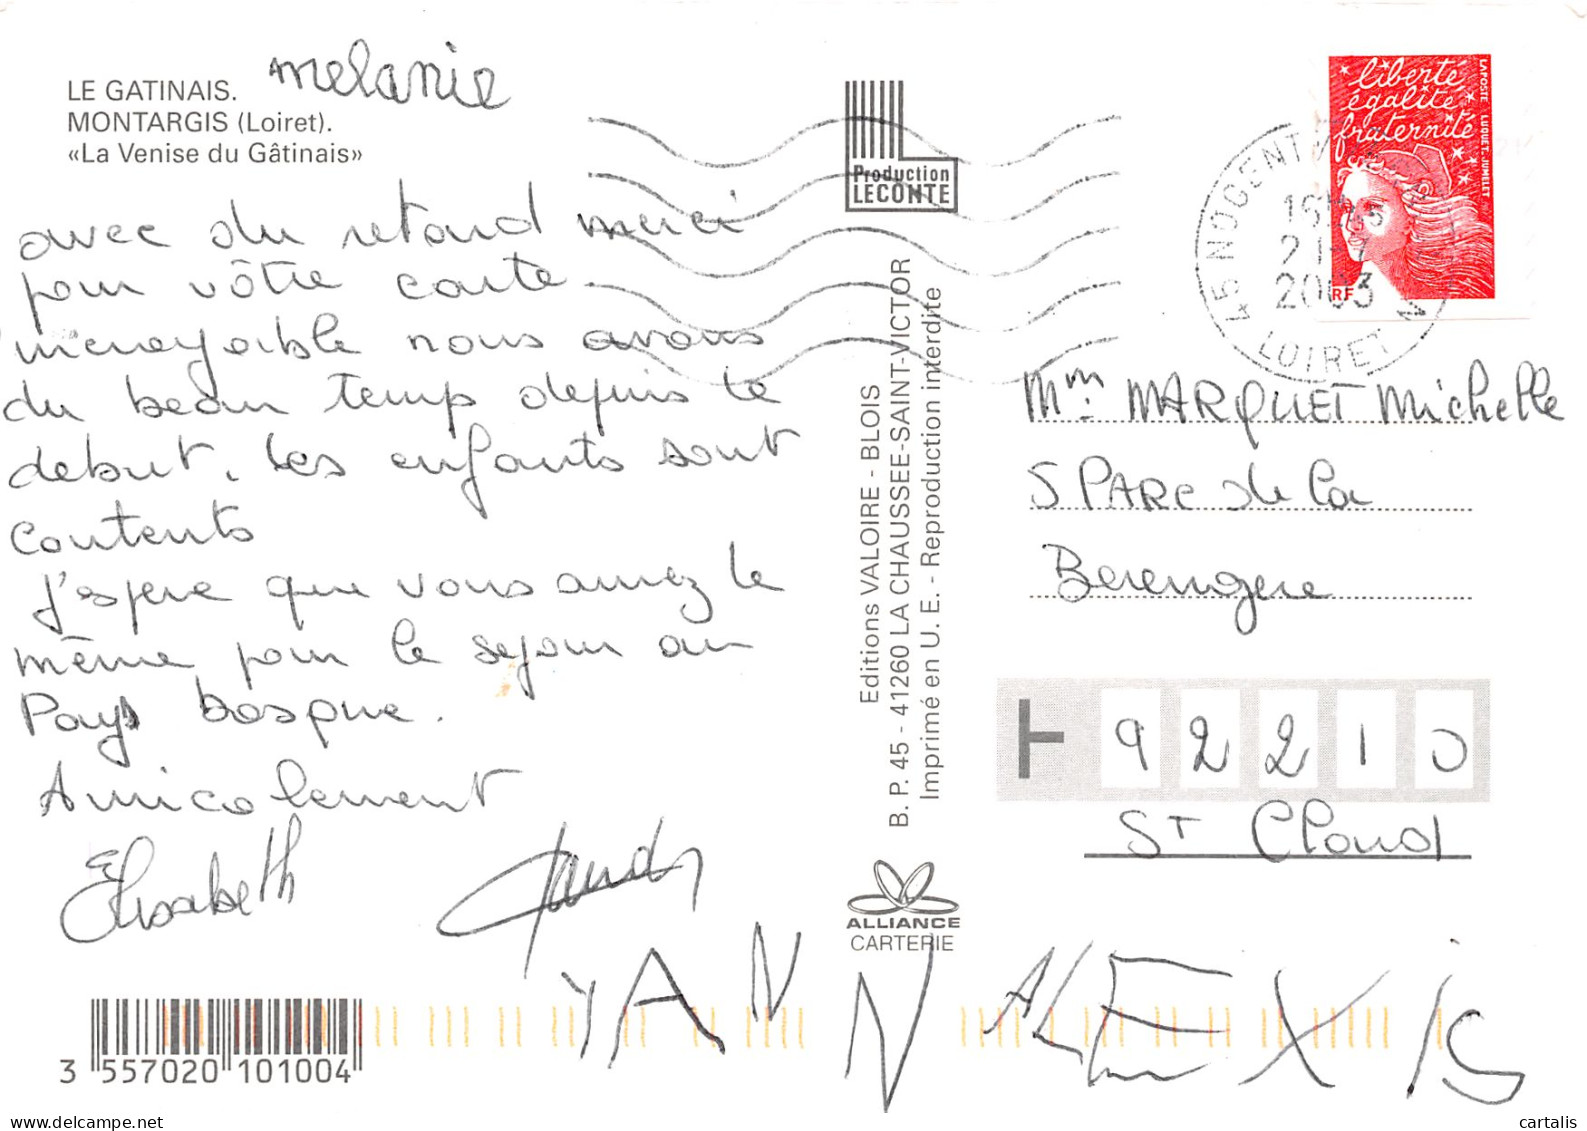 LE GATINAIS.
MONTARGIS (Loiret).
«La Venise du Gâtinais»
melanie
avec du retard merci
pour vôtre carte
incroyable nous avons
du beau temps depuis le
debut. Les enfants sont
contents
J'espere que vous aurez le
même pour le sejour au
Pays basque.
Amicalement
Elisabeth
YANN
ALEXIS
3 557020 101004
Production
LECONTE
Editions VALOIRE - BLOIS
B. P. 45 - 41260 LA CHAUSSEE-SAINT-VICTOR
Imprimé en U. E. - Reproduction interdite
ALLIANCE
CARTERIE
liberté
égalité
fraternité
LAPOSTE LUQUET-JUMELET
RF
45 NOGENT
LOIRET
2003
Mme MARQUET Michelle
5 PARC de la
Berengere
92210
ST Cloud
delcampe.net
cartalis